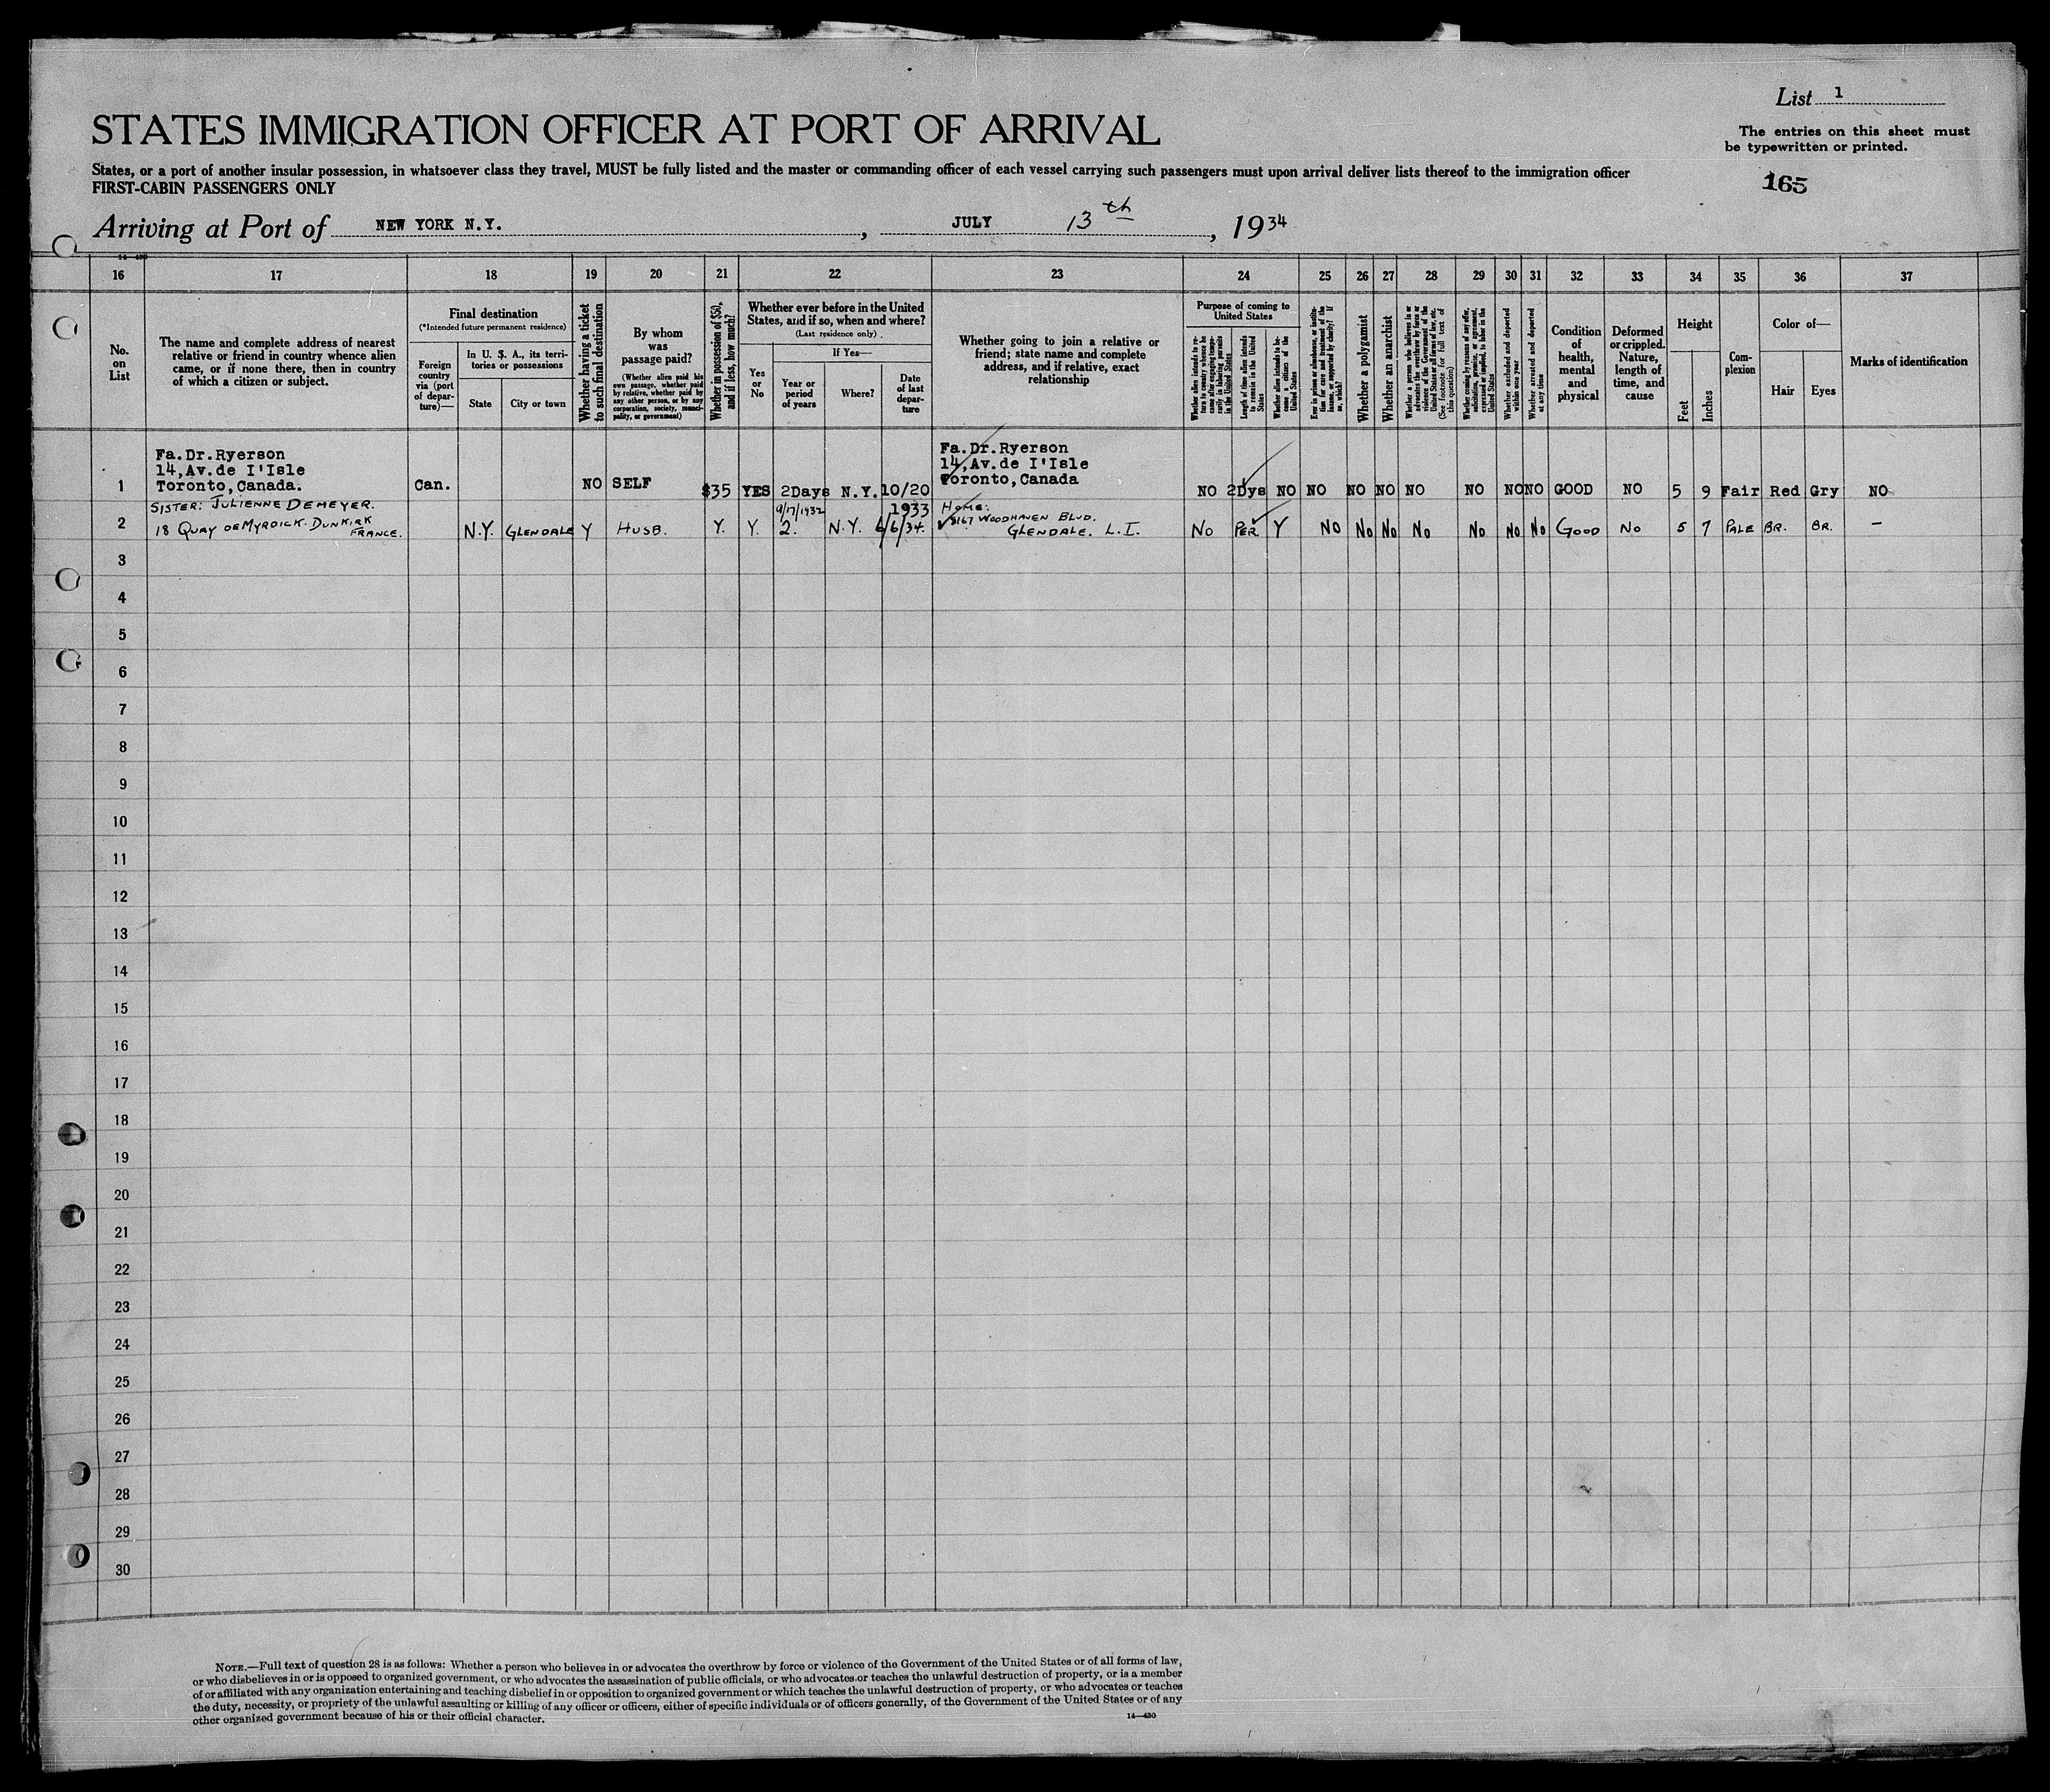 List 1
STATES IMMIGRATION OFFICER AT PORT OF ARRIVAL
The entries on this sheet must
be typewritten or printed.
States, or a port of another insular possession, in whatsoever class they travel, MUST be fully listed and the master or commanding officer of each vessel carrying such passengers must upon arrival deliver lists thereof to the immigration officer
FIRST-CABIN PASSENGERS ONLY
165
Arriving at Port of NEW YORK N.Y., JULY 13th, 1934
16 17 18 19 20 21 22 23 24 25 26 27 28 29 30 31 32 33 34 35 36 37
No.
on
List
The name and complete address of nearest
relative or friend in country whence alien
came, or if none there, then in country
of which a citizen or subject.
Final destination
(*Intended future permanent residence)
Foreign
country
via (port
of depar-
ture)—
In U. S. A., its terri-
tories or possessions
State
City or town
Whether having a ticket
to such final destination
By whom
was
passage paid?
(Whether alien paid his
own passage, whether paid
by relative, whether paid by
any other person, or by any
corporation, society, munici-
pality, or government)
Whether in possession of $50,
and if less, how much?
Whether ever before in the United
States, and if so, when and where?
(Last residence only)
Yes
or
No
If Yes—
Year or
period
of years
Where?
Date
of last
depar-
ture
Whether going to join a relative or
friend; state name and complete
address, and if relative, exact
relationship
Purpose of coming to
United States
Whether alien intends to re-
turn to country whence he
came after engaging tempo-
rarily in laboring pursuits
in the United States
Length of time alien intends
to remain in the United
States
Whether alien intends to be-
come a citizen of the
United States
Ever in prison or almshouse, or institu-
tion for care and treatment of the
insane, or supported by charity? If
so, which?
Whether a polygamist
Whether an anarchist
Whether a person who believes in or
advocates the overthrow by force or
violence of the Government of the
United States or all forms of law, etc.
(See footnote for full text of
this question)
Whether coming by reasons of any offer,
solicitation, promise, or agreement,
expressed or implied, to labor in the
United States
Whether excluded and deported
within one year
Whether arrested and deported
at any time
Condition
of
health,
mental
and
physical
Deformed
or crippled.
Nature,
length of
time, and
cause
Height
Feet
Inches
Com-
plexion
Color of—
Hair
Eyes
Marks of identification
Fa.Dr.Ryerson
14,Av.de I'Isle
Toronto,Canada.
1 Can. NO SELF $35 YES 2Days N.Y. 10/20
1933
Fa.Dr.Ryerson
14,Av.de I'Isle
Toronto,Canada
NO 2Dys NO NO NO NO NO NO NO NO GOOD NO 5 9 Fair Red Gry NO
SISTER: JULIENNE DEMEYER.
2 18 QUAY DE MYRDICK. DUNKIRK
FRANCE.
N.Y. GLENDALE Y HUSB. Y. Y. 9/17/1932
2. N.Y. 6/6/34.
HOME:
8167 WOODHAVEN BLVD.
GLENDALE. L.I.
NO PER Y NO NO NO NO NO NO NO GOOD NO 5 7 PALE BR. BR. —
3
4
5
6
7
8
9
10
11
12
13
14
15
16
17
18
19
20
21
22
23
24
25
26
27
28
29
30
NOTE.—Full text of question 28 is as follows: Whether a person who believes in or advocates the overthrow by force or violence of the Government of the United States or of all forms of law,
or who disbelieves in or is opposed to organized government, or who advocates the assassination of public officials, or who advocates or teaches the unlawful destruction of property, or is a member
of or affiliated with any organization entertaining and teaching disbelief in or opposition to organized government or which teaches the unlawful destruction of property, or who advocates or teaches
the duty, necessity, or propriety of the unlawful assaulting or killing of any officer or officers, either of specific individuals or of officers generally, of the Government of the United States or of any
other organized government because of his or their official character.
14—430